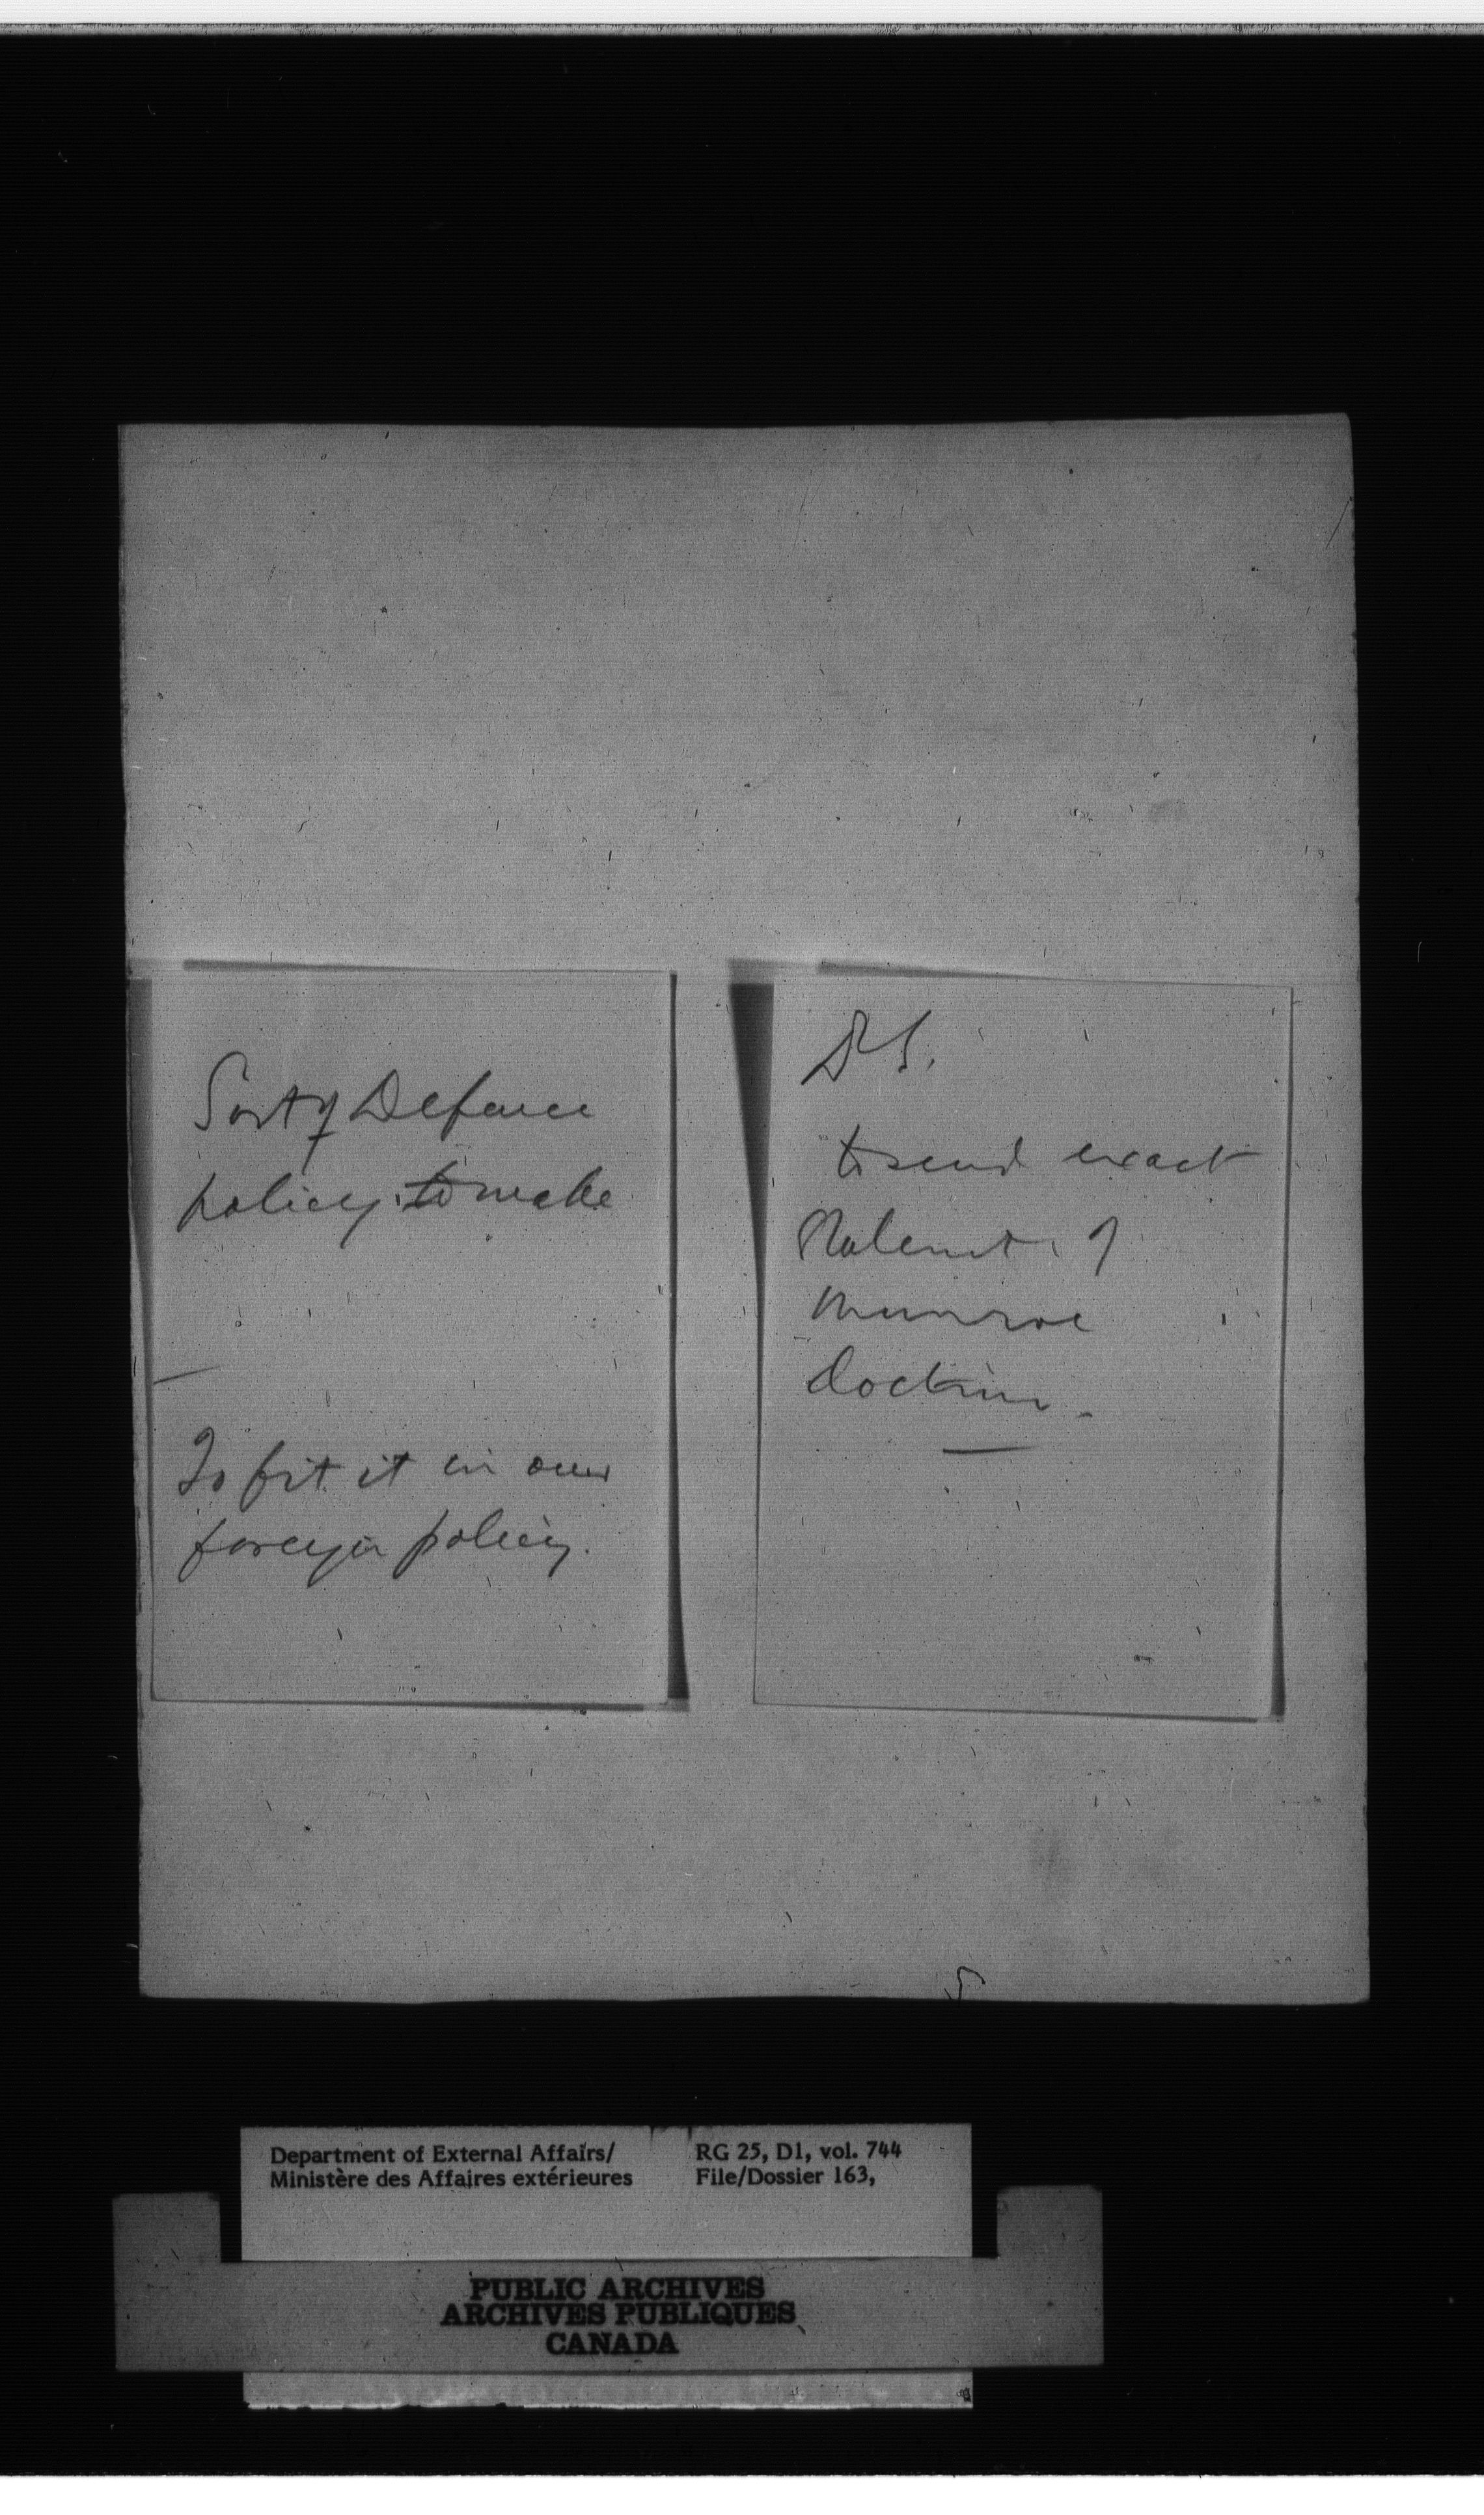 Sort of Defence
policy. to make
To fit it in our
foreign policy.
to send exact
Statemt. of
Munroe
doctrine.
Department of External Affairs/
Ministère des Affaires extérieures
RG 25, D1, vol. 744
File/Dossier 163,
PUBLIC ARCHIVES
ARCHIVES PUBLIQUES
CANADA